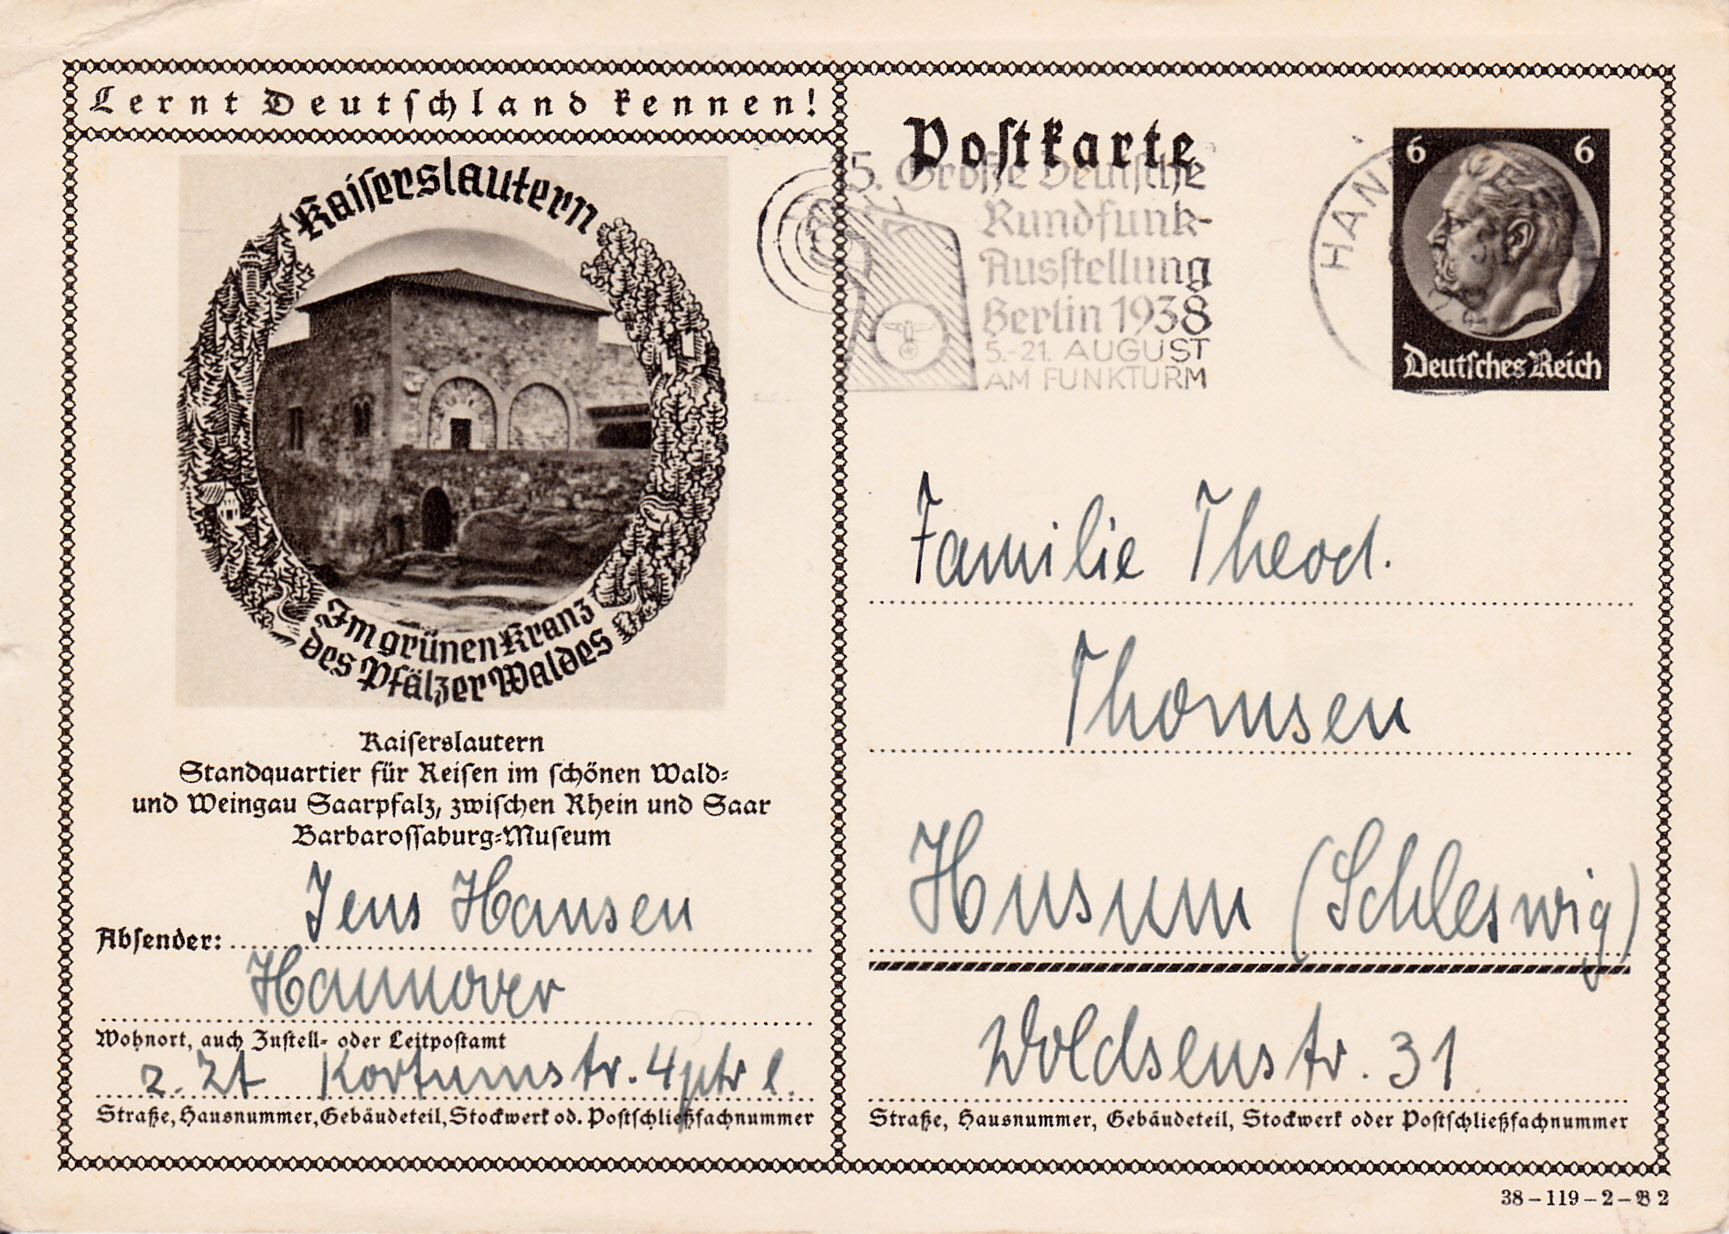 Lernt Deutschland kennen!
Kaiserslautern
Im grünen Kranz
des Pfälzer Waldes
Kaiserslautern
Standquartier für Reisen im schönen Wald-
und Weingau Saarpfalz, zwischen Rhein und Saar
Barbarossaburg-Museum
Jens Hansen
Absender:
Hannover
Wohnort, auch Zustell- oder Leitpostamt
z. Zt Kortumstr. 4 ptr l.
Straße, Hausnummer, Gebäudeteil, Stockwerk od. Postschließfachnummer
Postkarte
5. Große Deutsche
Rundfunk-
Ausstellung
Berlin 1938
5.-21. AUGUST
AM FUNKTURM
HAN
6 6
Deutsches Reich
Familie Theod.
Thomsen
Husum (Schleswig)
Woldsenstr. 31
Straße, Hausnummer, Gebäudeteil, Stockwerk oder Postschließfachnummer
38-119-2-B 2